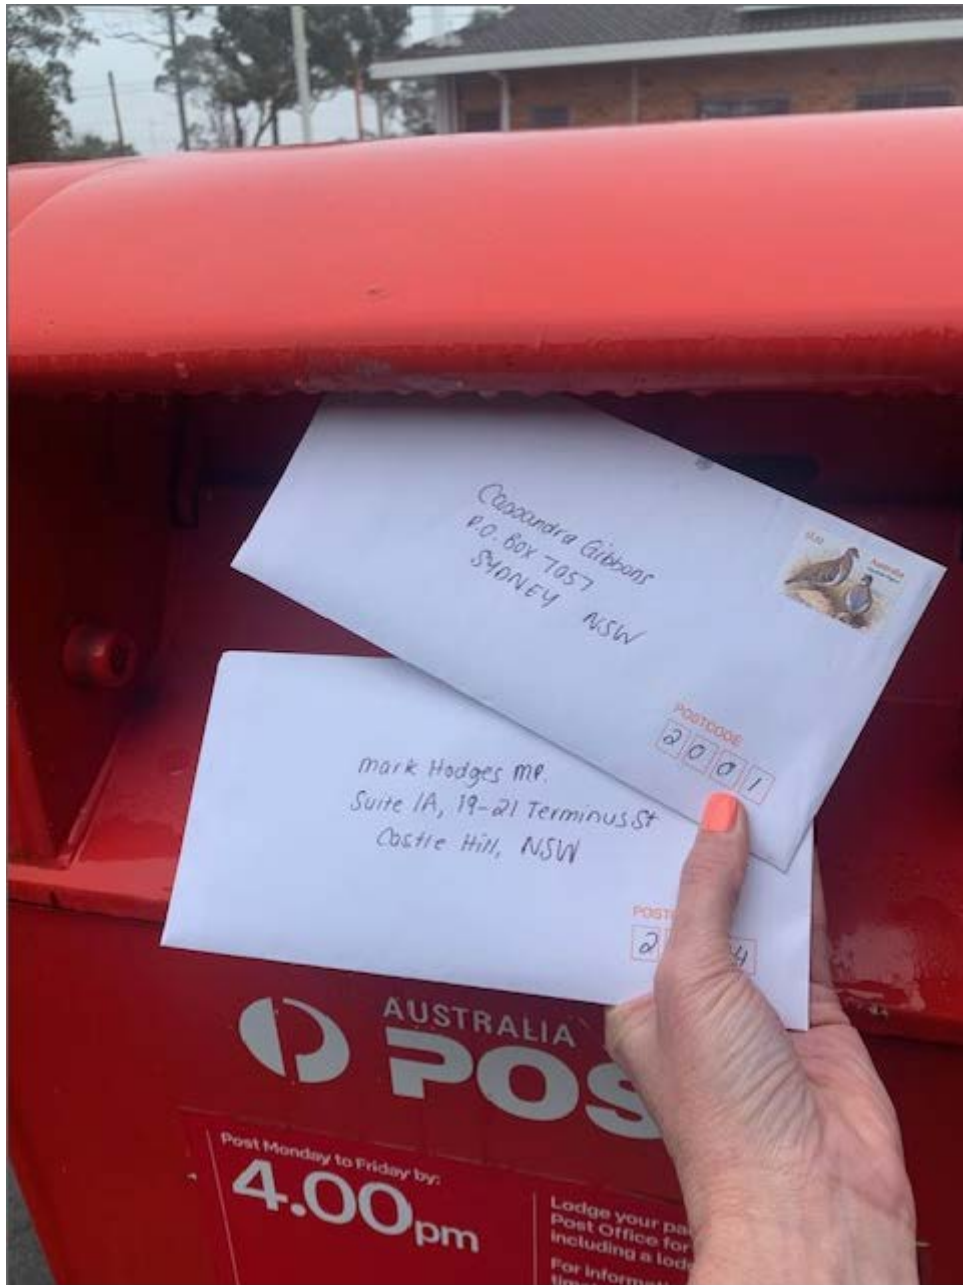 Cassandra Gibbons
P.O. Box 7057
SYDNEY NSW
$1.10
Australia
POSTCODE
2001
mark Hodges MP.
Suite 1A, 19-21 Terminus St
Castle Hill, NSW
POST
2 4
AUSTRALIA
POS
Post Monday to Friday by:
4.00pm
Lodge your
Post Office for
including a
For